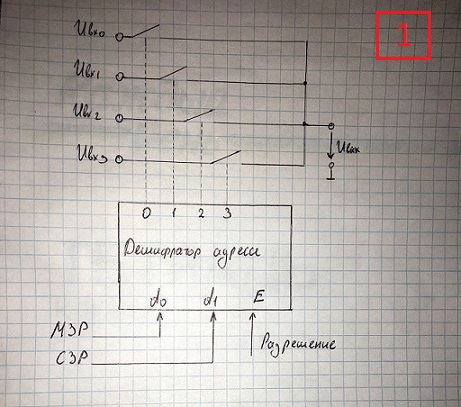 Uвх0
1
Uвх1
Uвх2
Uвх3
Uвых
0 1 2 3
Дешифратор адреса
A0 A1 E
МЗР
СЗР
Разрешение